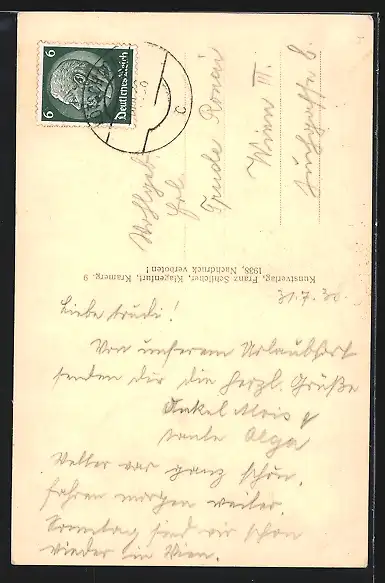 6
Deutsches Reich
6
c
Wohlgeb.
Frl.
Trude
Wien III.
Kunstverlag, Franz Schilcher, Klagenfurt, Kramerg. 9
1938, Nachdruck verboten!
31.7.
Liebe Trudi!
Von unserem Urlaubsort
senden dir die herzl. Grüße
Onkel Alois &
Tante Olga
Wetter war ganz schön,
fahren morgen weiter.
Sonntag sind wir schon
wieder in Wien.